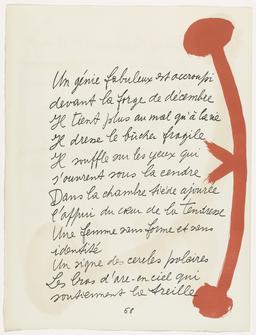 Un génie fabuleux est accroupi
devant la forge de décembre
Il tient plus au mal qu'à la
Il dresse le bûcher fragile
Il souffle sur les yeux qui
s'ouvrent sous la cendre
Dans la chambre tiède ajourée
l'appui du cœur de la tendresse
Une femme sans forme et sans
identité
Un signe des cercles polaires
Les bras d'arc-en-ciel qui
soutiennent la treille
68